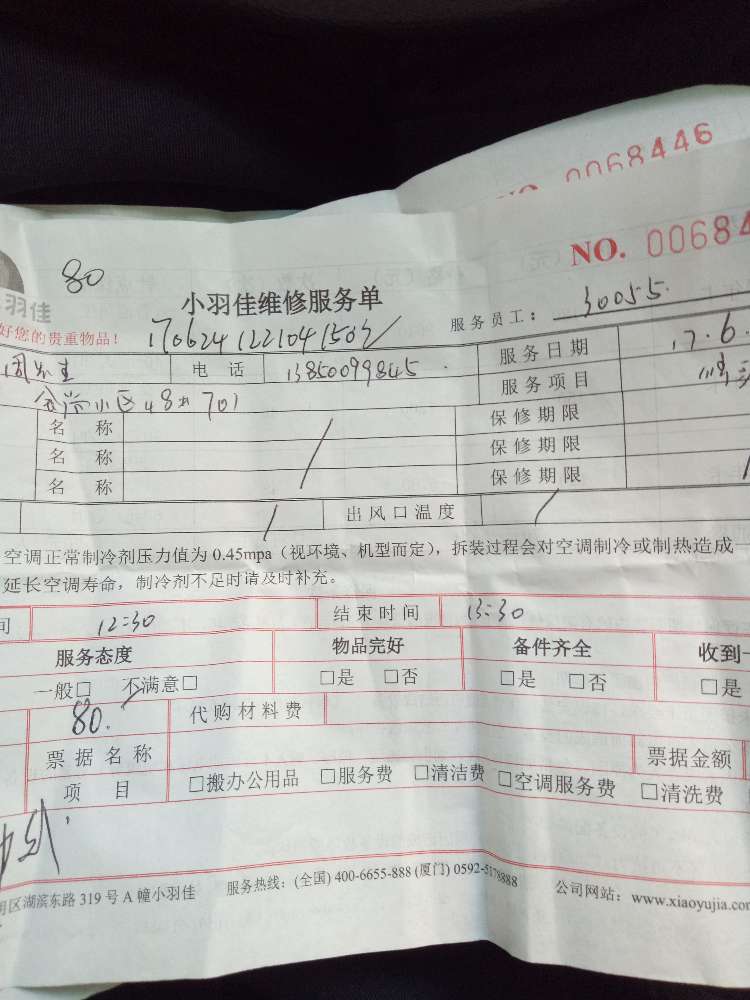 NO. 0068446
NO. 0068
80
羽佳
小羽佳维修服务单
好您的贵重物品!
170624122104150
服务员工: 30055.
电 话 13850099845
服务日期 17.6.
小区48# 701
服务项目
名 称 保修期限
名 称 保修期限
名 称 保修期限
出风口温度
空调正常制冷剂压力值为 0.45mpa(视环境、机型而定),拆装过程会对空调制冷或制热造成
延长空调寿命,制冷剂不足时请及时补充。
间 12:30 结束时间 13:30
服务态度 物品完好 备件齐全 收到一
一般□ 不满意□ □是 □否 □是 □否 □是
80. 代购材料费
票据名称 票据金额
项 目 □搬办公用品 □服务费 □清洁费 □空调服务费 □清洗费
明区湖滨东路 319 号 A 幢小羽佳 服务热线:(全国) 400-6655-888 (厦门) 0592-5178888 公司网站:www.xiaoyujia.com